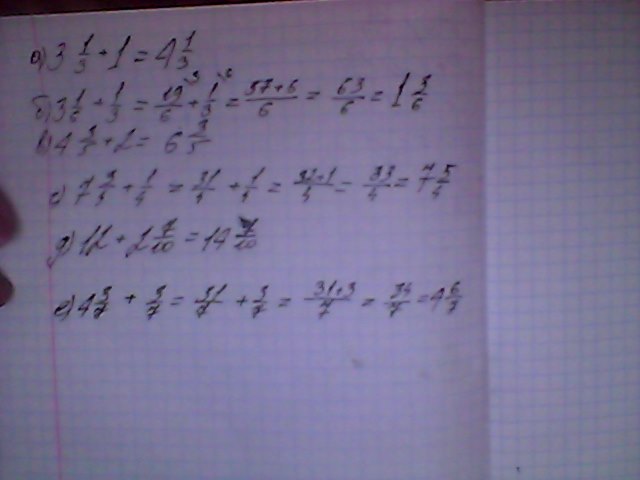 а) 3 1/3 + 1 = 4 1/3
б) 3 1/6 + 1/3 = 19/6 + 1/3 = 57+6/6 = 63/6 = 1 3/6
в) 4 3/5 + 2 = 6 3/5
7 3/4 + 1/4 = 31/4 + 1/4 = 32+1/4 = 33/4 = 7 5/4
д) 12 + 2 7/10 = 14 7/10
е) 4 3/7 + 3/7 = 31/7 + 3/7 = 31+3/7 = 34/7 = 4 6/7